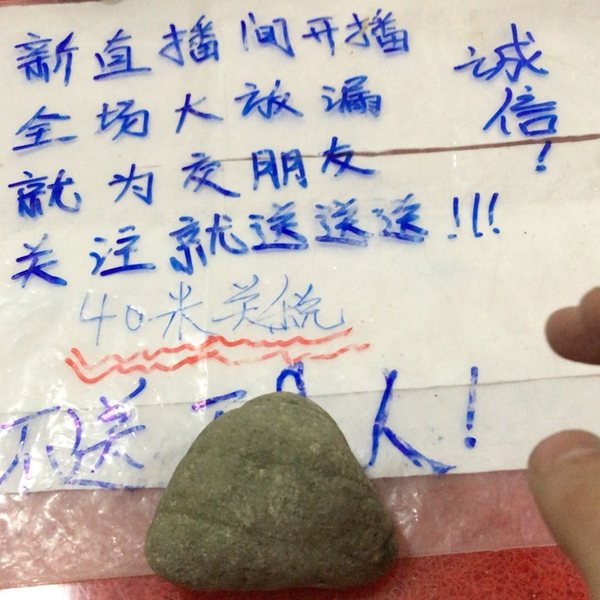 新直播间开播
全场大放漏
就为交朋友
关注就送送送!!!
诚信!
40米关税
不送 人!